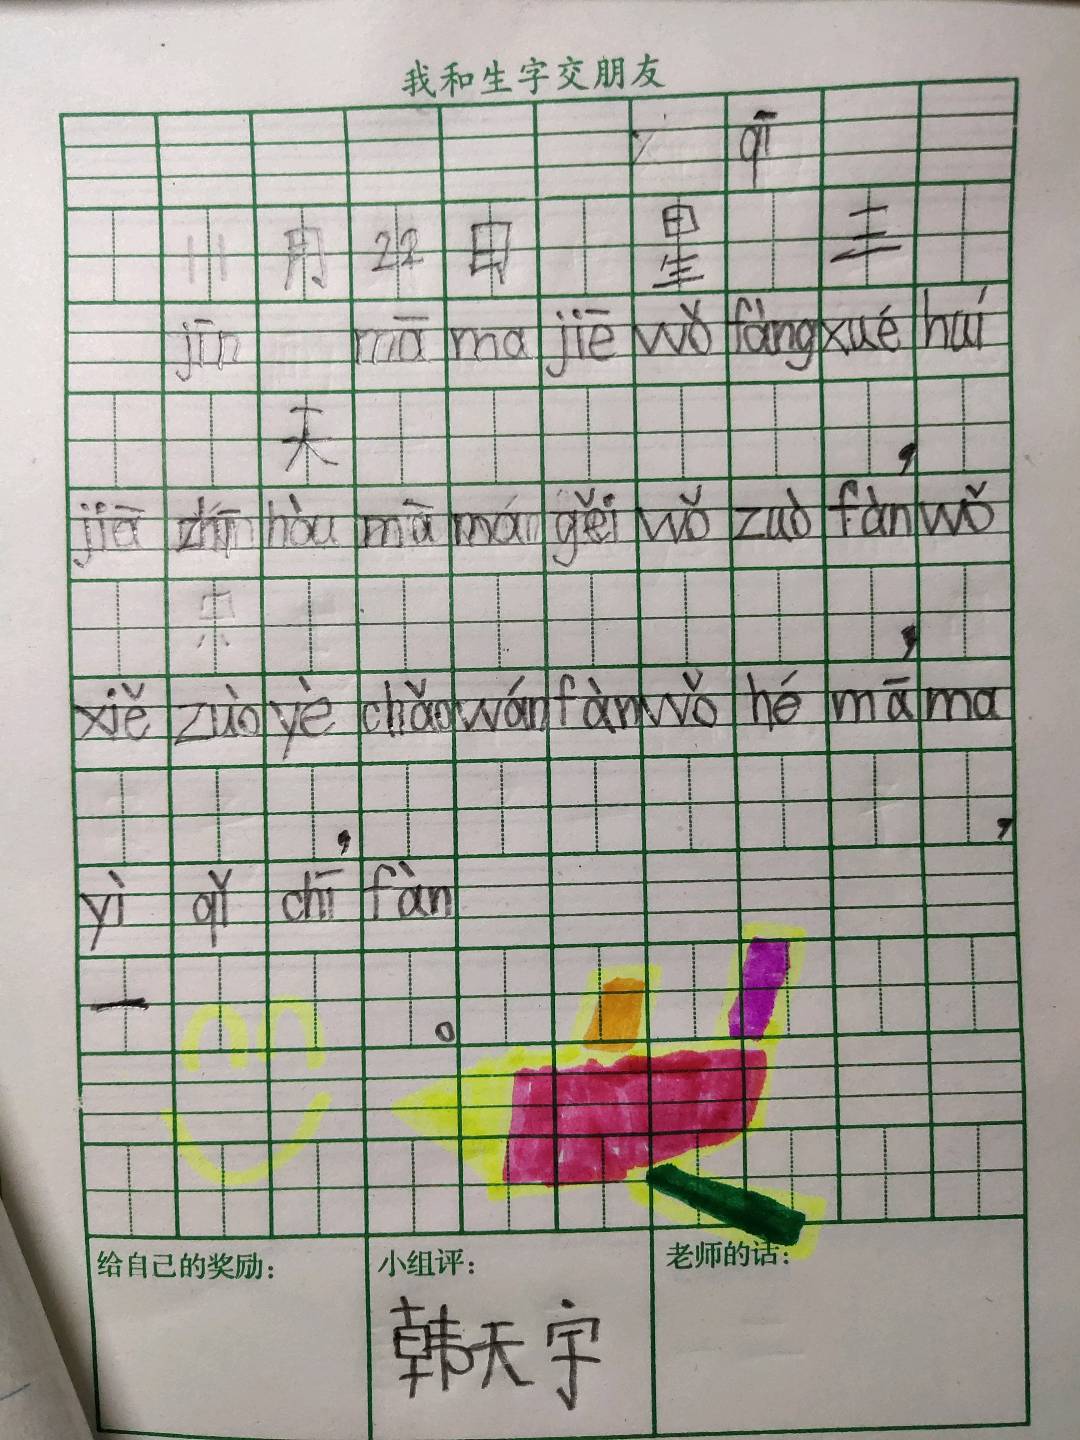 我和生字交朋友
qī
11 月 22 日 星 三
jīn mā ma jiē wǒ fàng xué huí
天 ,
jiā zhī hòu mā má gěi wǒ zuò fàn wǒ
,
xiě zuò yè chǎo wán fàn wǒ hé mā ma
, ,
yì qǐ chī fàn
一 。
给自己的奖励: 小组评: 老师的话:
韩天宇